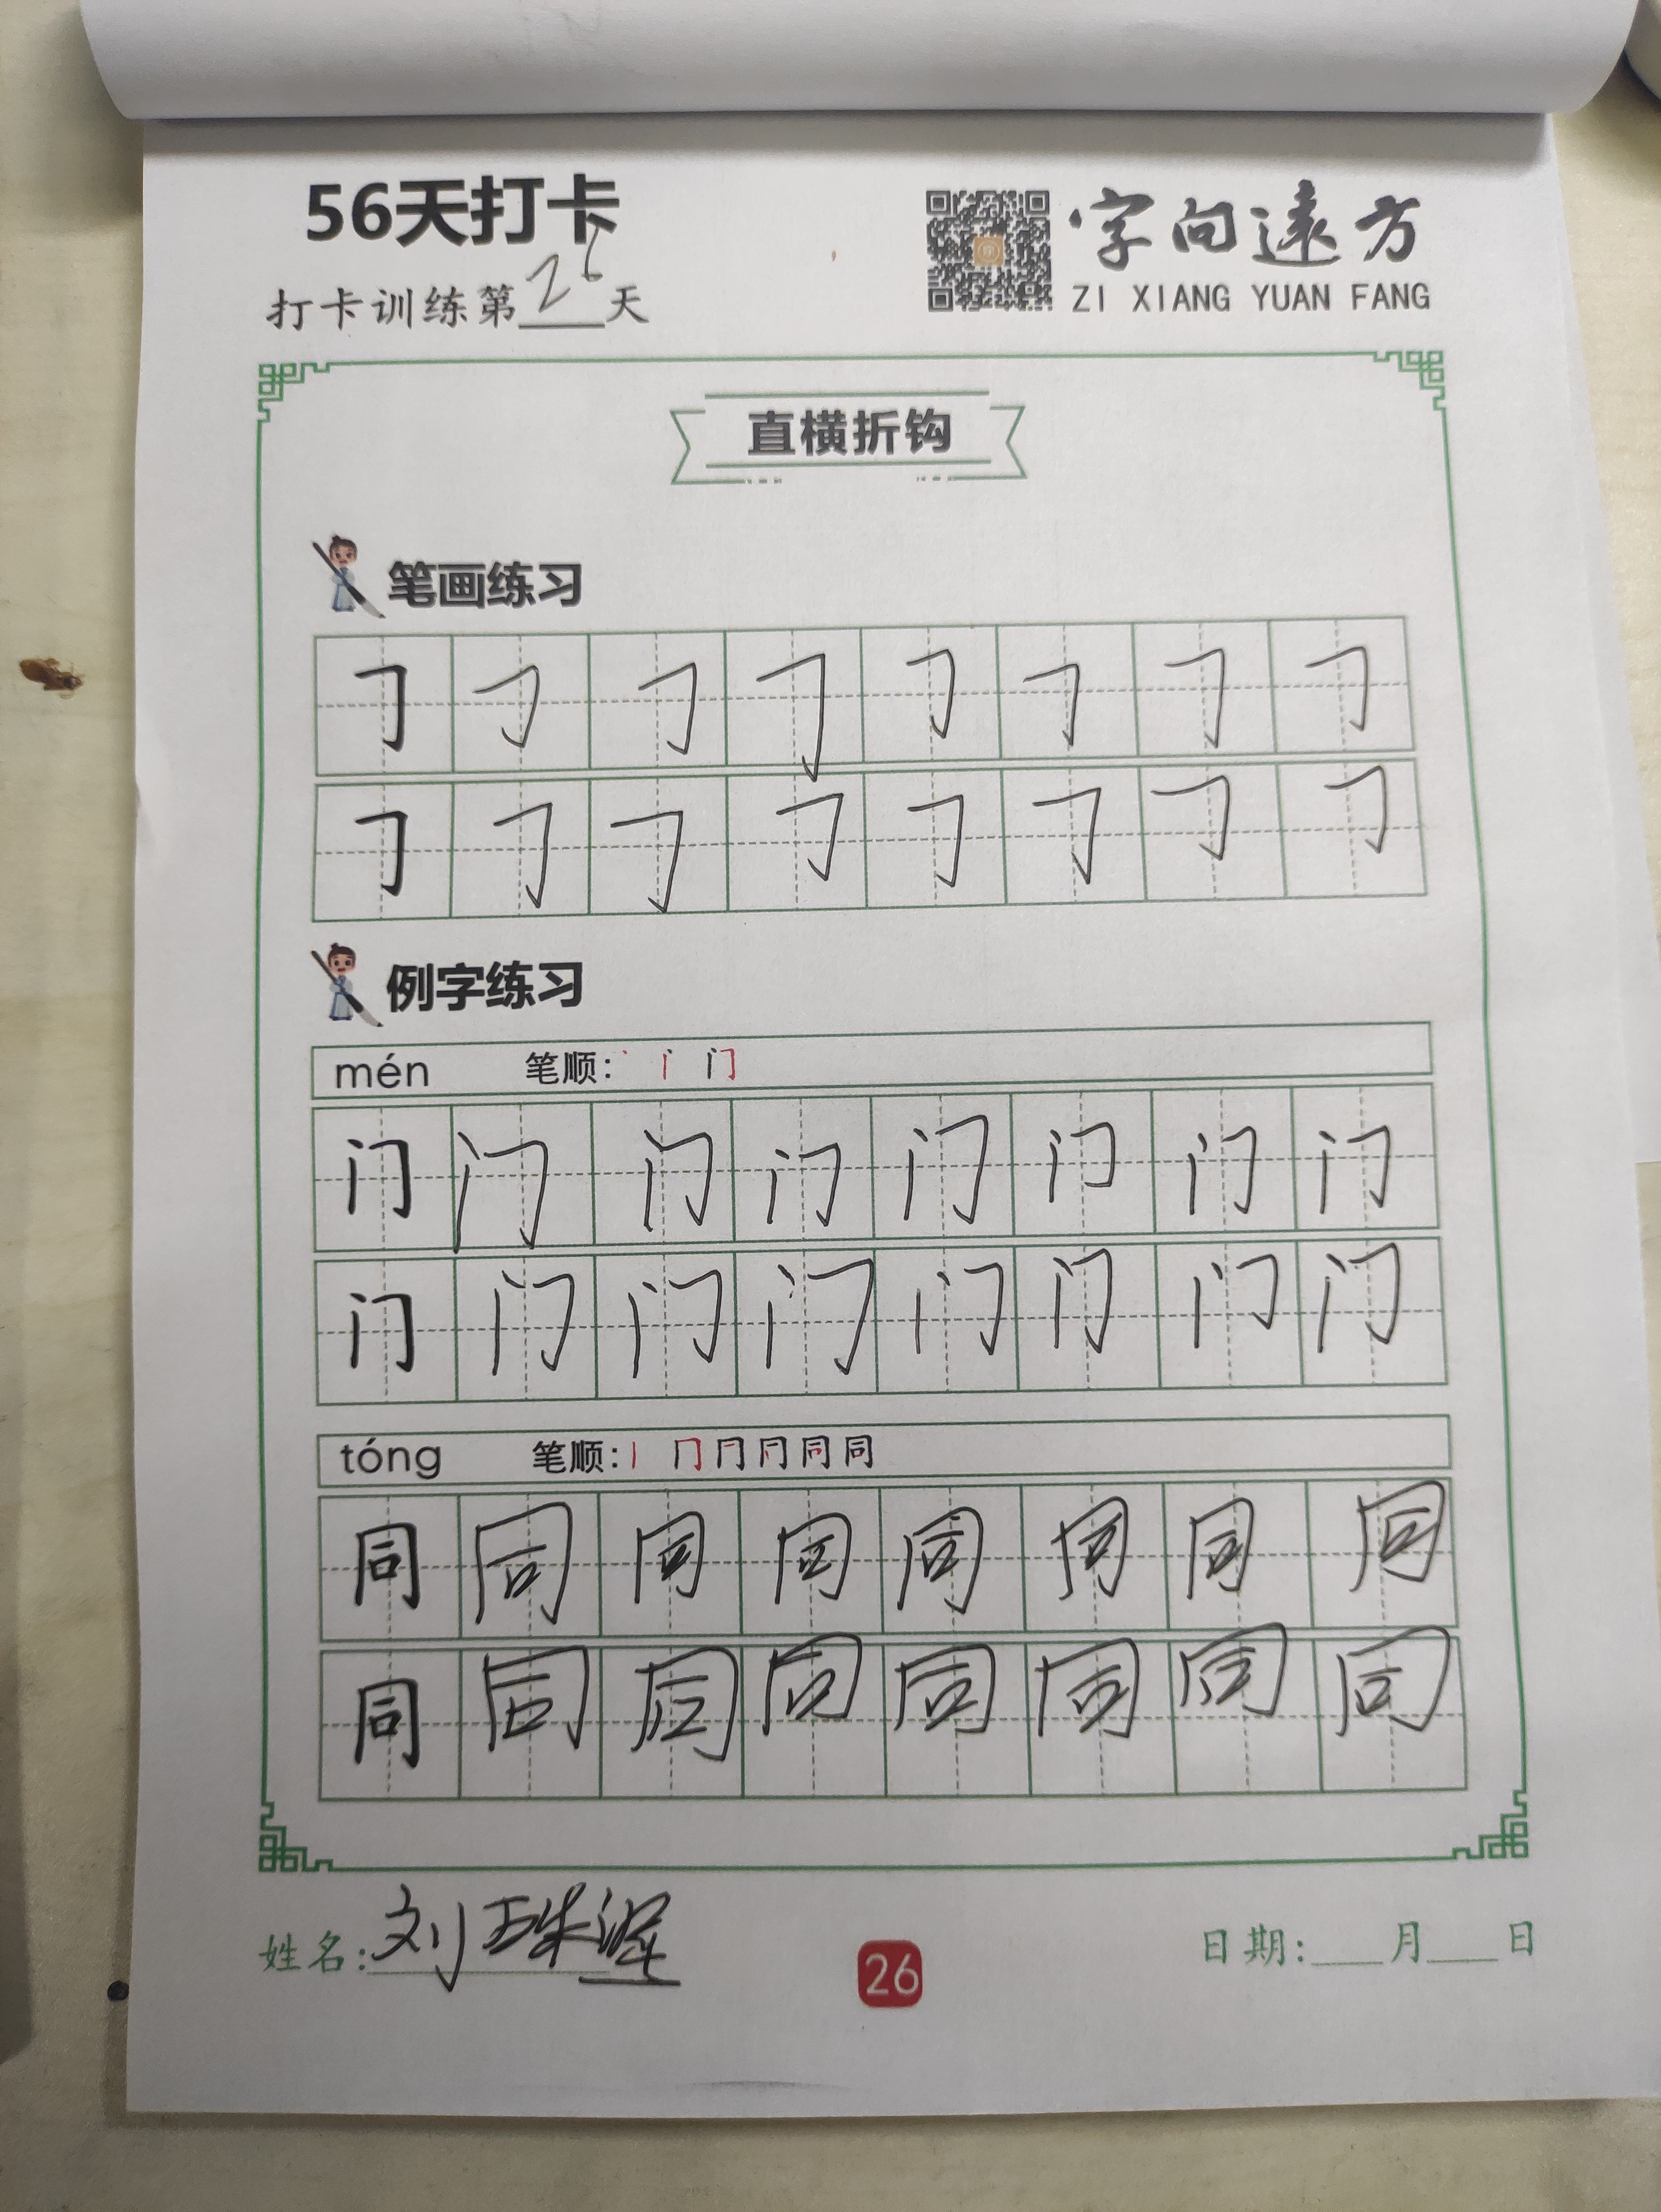 56天打卡
字向遠方
打卡训练第26天
ZI XIANG YUAN FANG
直横折钩
笔画练习
㇆ ㇆ ㇆ ㇆ ㇆ ㇆ ㇆ ㇆
㇆ ㇆ ㇆ ㇆ ㇆ ㇆ ㇆ ㇆
例字练习
mén 笔顺: 丶 门
门 门 门 门 门 门 门 门
门 门 门 门 门 门 门 门
tóng 笔顺: 丨 冂 同 同
同 同 同 同 同 同 同 同
同 同 同 同 同 同 同 同
姓名: 刘珠
26
日期:___月___日